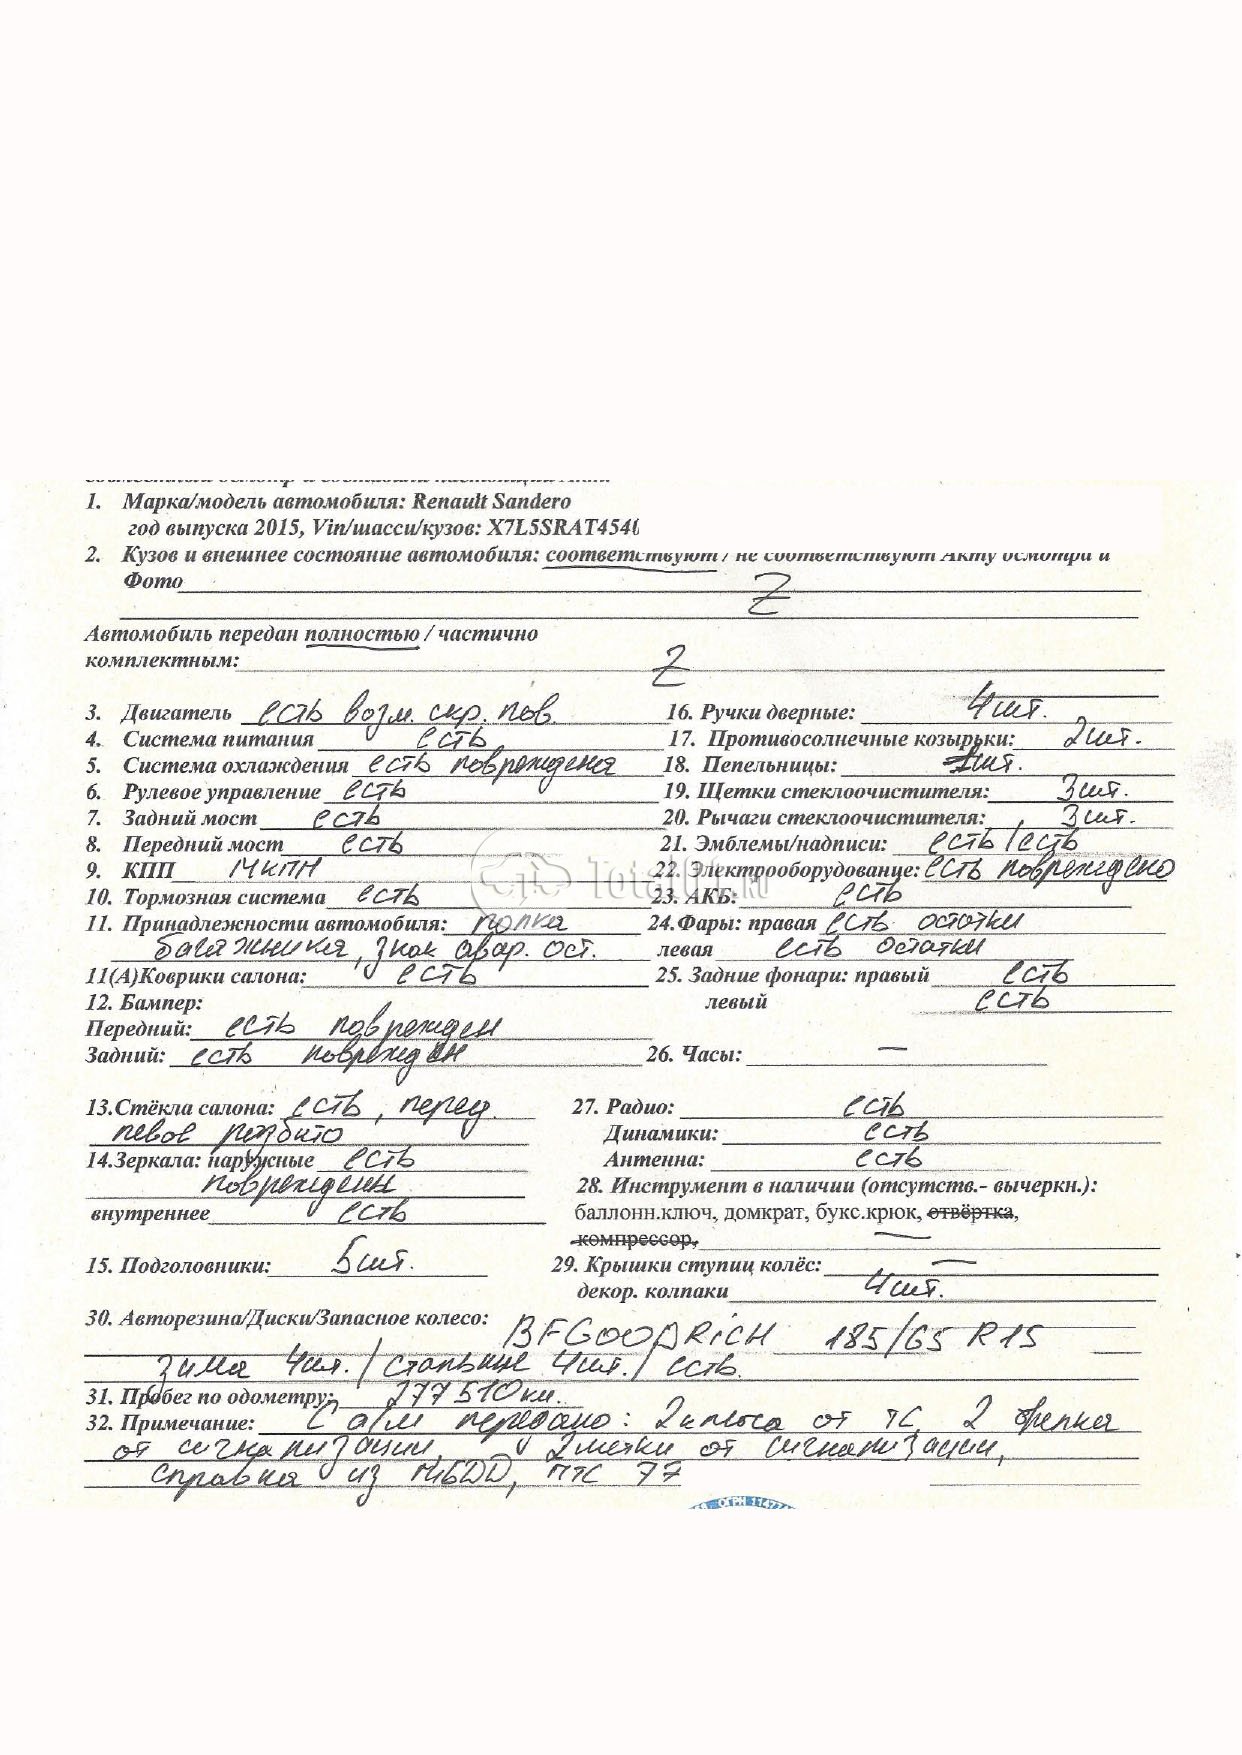 1. Марка/модель автомобиля: Renault Sandero
год выпуска 2015, Vin/шасси/кузов: X7L5SRAT454
2. Кузов и внешнее состояние автомобиля: соответствуют / не соответствуют Акту осмотра и
Фото Z
Автомобиль передан полностью / частично
комплектным: Z
3. Двигатель есть возм. скр. пов
4. Система питания есть
5. Система охлаждения есть повреждения
6. Рулевое управление есть
7. Задний мост есть
8. Передний мост есть
9. КПП МКПП
10. Тормозная система есть
11. Принадлежности автомобиля: полка
багажника, знак авар. ост.
11(А)Коврики салона: есть
12. Бампер:
Передний: есть поврежден
Задний: есть поврежден
16. Ручки дверные: 4шт.
17. Противосолнечные козырьки: 2шт.
18. Пепельницы: 1шт.
19. Щетки стеклоочистителя: 3шт.
20. Рычаги стеклоочистителя: 3шт.
21. Эмблемы/надписи: есть/есть
22. Электрооборудование: есть повреждено
23. АКБ: есть
24.Фары: правая есть остатки
левая есть остатки
25. Задние фонари: правый есть
левый есть
26. Часы: —
13.Стёкла салона: есть, перед.
левое разбито
14.Зеркала: наружные есть
поврежден
внутреннее есть
15. Подголовники: 5шт.
27. Радио: есть
Динамики: есть
Антенна: есть
28. Инструмент в наличии (отсутств.- вычеркн.):
баллонн.ключ, домкрат, букс.крюк, отвёртка,
компрессор, —
29. Крышки ступиц колёс: —
декор. колпаки 4шт.
30. Авторезина/Диски/Запасное колесо: BFGOODRICH 185/65 R15
зима 4шт./стальные 4шт./есть.
31. Пробег по одометру: 277510км.
32. Примечание: С а/м передано: 2 ключа от ТС, 2 брелка
от сигнализации, 2 метки от сигнализации,
справка из ГИБДД, ПТС 77
TotalOI.ru
ОГРН 11477